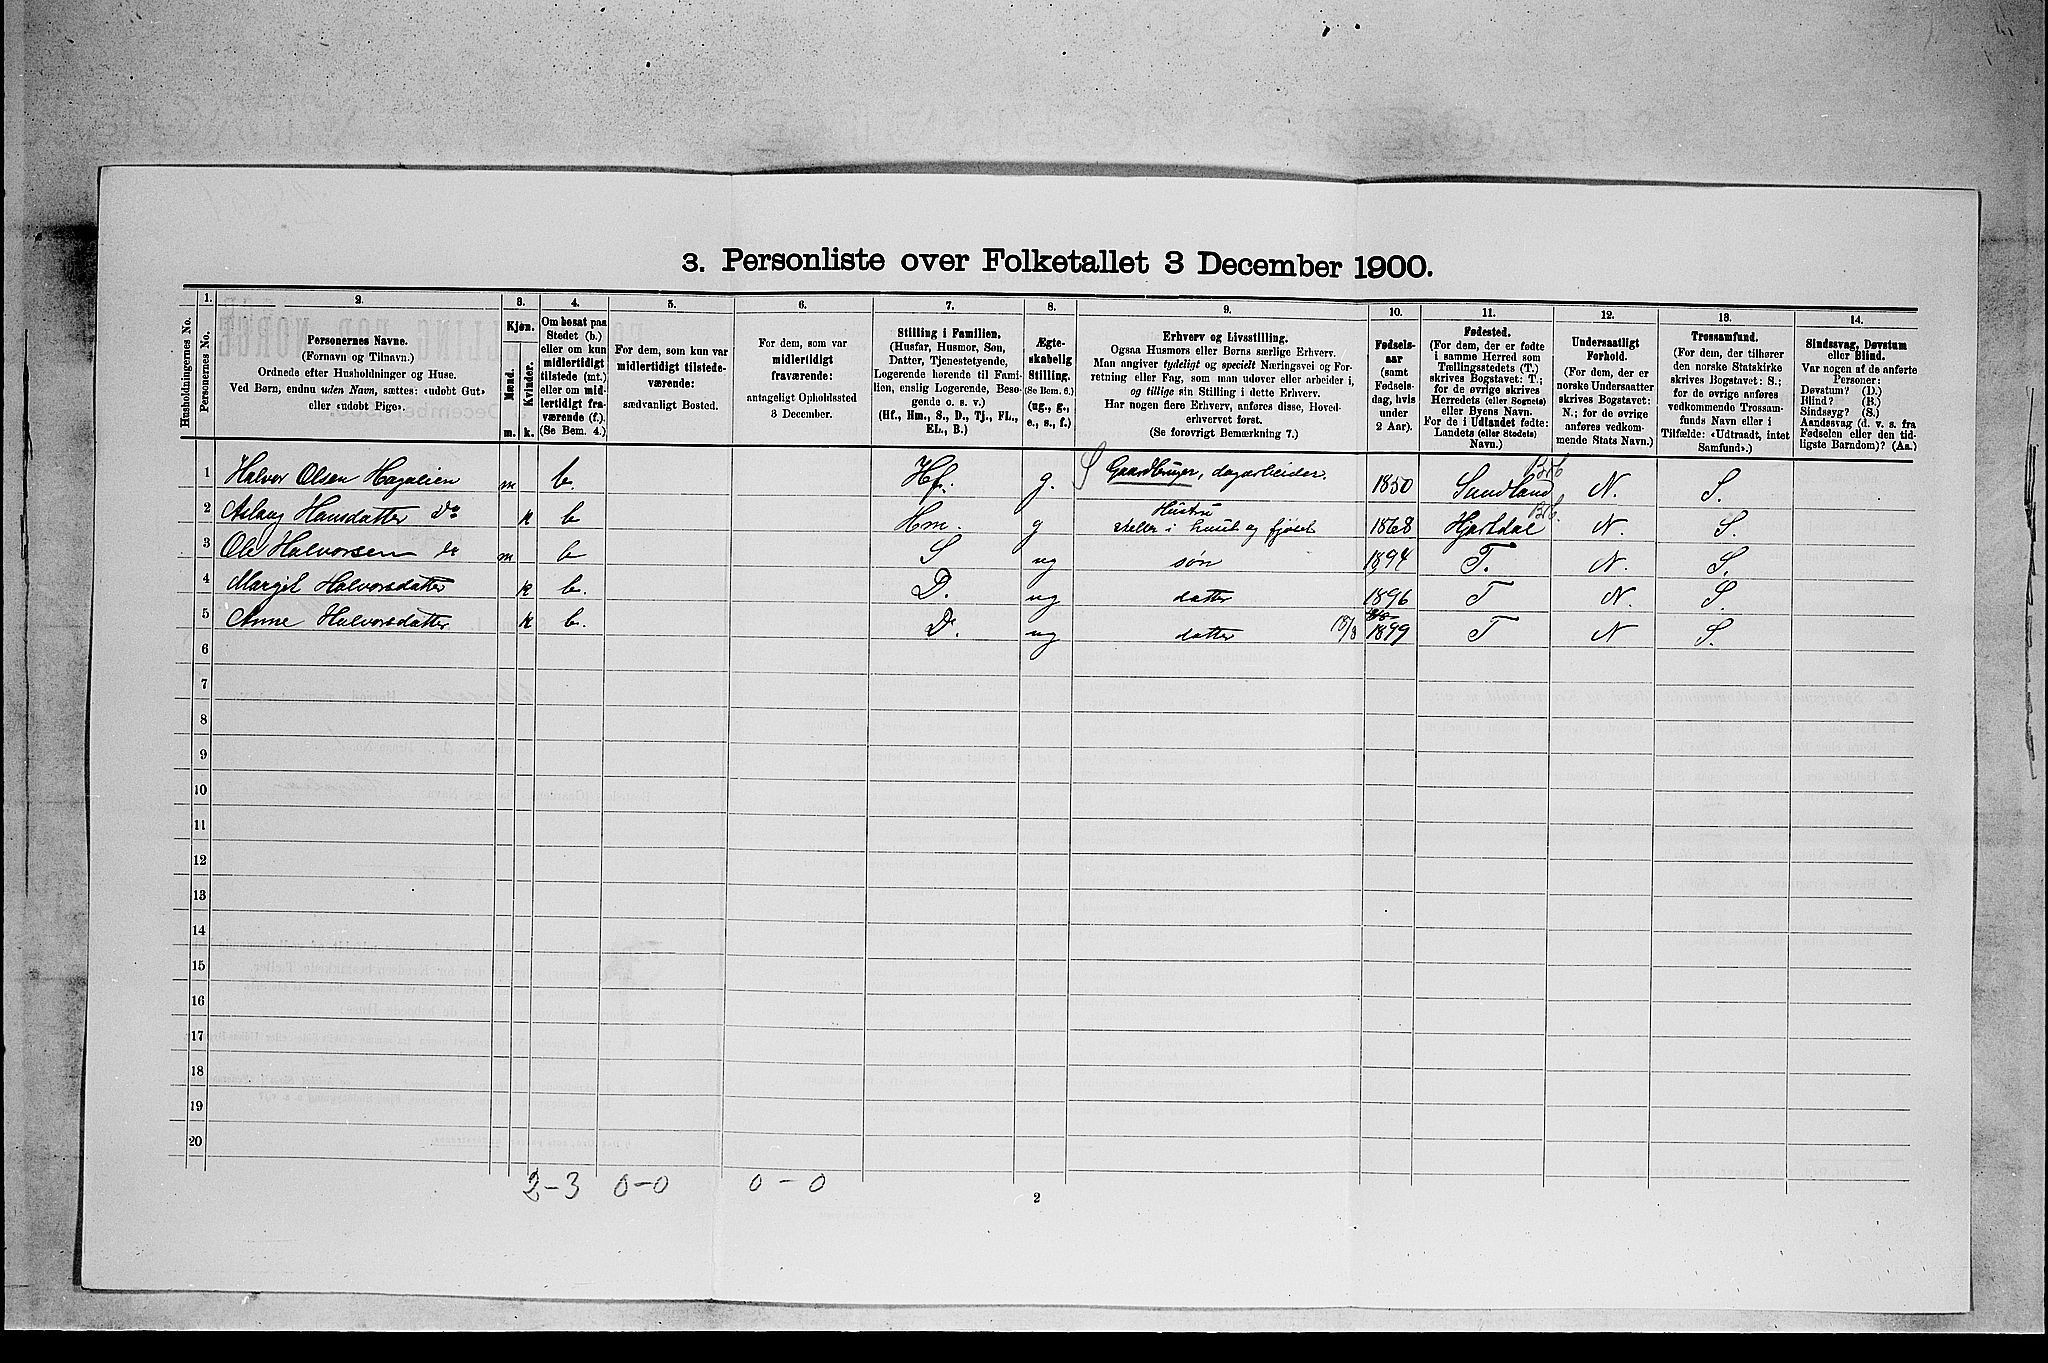 3. Personliste over Folketallet 3 December 1900.
1. 2. 3. 4. 5. 6. 7. 8. 9. 10. 11. 12. 13. 14.
Husholdningernes No.
Personernes No.
Personernes Navne.
(Fornavn og Tilnavn.)
Ordnede efter Husholdninger og Huse.
Ved Børn, endnu uden Navn, sættes: «udøbt Gut»
eller «udøbt Pige».
Kjøn.
Mænd.
Kvinder.
m. k.
Om bosat paa
Stedet (b.)
eller om kun
midlertidigt
tilstede (mt.)
eller om mid-
lertidigt fra-
værende (f.)
(Se Bem. 4.)
For dem, som kun var
midlertidigt tilstede-
værende:
sædvanligt Bosted.
For dem, som var
midlertidigt
fraværende:
antageligt Opholdssted
3 December.
Stilling i Familien.
(Husfar, Husmor, Søn,
Datter, Tjenestetyende,
Logerende hørende til Fami-
lien, enslig Logerende, Besø-
gende o. s. v.)
(Hf., Hm., S., D., Tj., FL.,
EL., B.)
Ægte-
skabelig
Stilling.
(Se Bem. 6.)
(ug., g.,
e., s., f.)
Erhverv og Livsstilling.
Ogsaa Husmors eller Børns særlige Erhverv.
Man angiver tydeligt og specielt Næringsvei og For-
retning eller Fag, som man udøver eller arbeider i,
og tillige sin Stilling i dette Erhverv.
Har nogen flere Erhverv, anføres disse, Hoved-
erhvervet først.
(Se forøvrigt Bemærkning 7.)
Fødsels-
aar
(samt
Fødsels-
dag, hvis
under
2 Aar).
Fødested.
(For dem, der er fødte
i samme Herred som
Tællingsstedets (T.)
skrives Bogstavet: T.;
for de øvrige skrives
Herredets (eller Sognets)
eller Byens Navn.
For de i Udlandet fødte:
Landets (eller Stedets)
Navn.)
Undersaatligt
Forhold.
(For dem, der er
norske Undersaatter
skrives Bogstavet:
N.; for de øvrige
anføres vedkom-
mende Stats Navn.)
Trossamfund.
(For dem, der tilhører
den norske Statskirke
skrives Bogstavet: S.;
for de øvrige anføres
vedkommende Trossam-
funds Navn eller i
Tilfælde: «Udtraadt, intet
Samfund».)
Sindssvag, Døvstum
eller Blind.
Var nogen af de anførte
Personer:
Døvstum? (D.)
Blind? (B.)
Sindssyg? (S.)
Aandssvag (d. v. s. fra
Fødselen eller den tid-
ligste Barndom)? (Aa.)
1 Halvor Olsen Hagalien m b. Hf. g. Gaardbruger, dagarbeider. 1850 Sandland N. S.
2 Aslaug Hansdatter Do k b Hm. g Hustru steller i huset og fjøset 1868 Hjartdal N. S.
3 Ole Halvorsen do m b S ug søn 1894 T. N. S.
4 Margit Halvorsdatter k b. D. ug datter 1896 T N. S.
5 Anne Halvorsdatter k b. D. ug datter 18/8 1899 T N S.
6
7
8
9
10
11
12
13
14
15
16
17
18
19
20
2-3 0-0 0-0
2